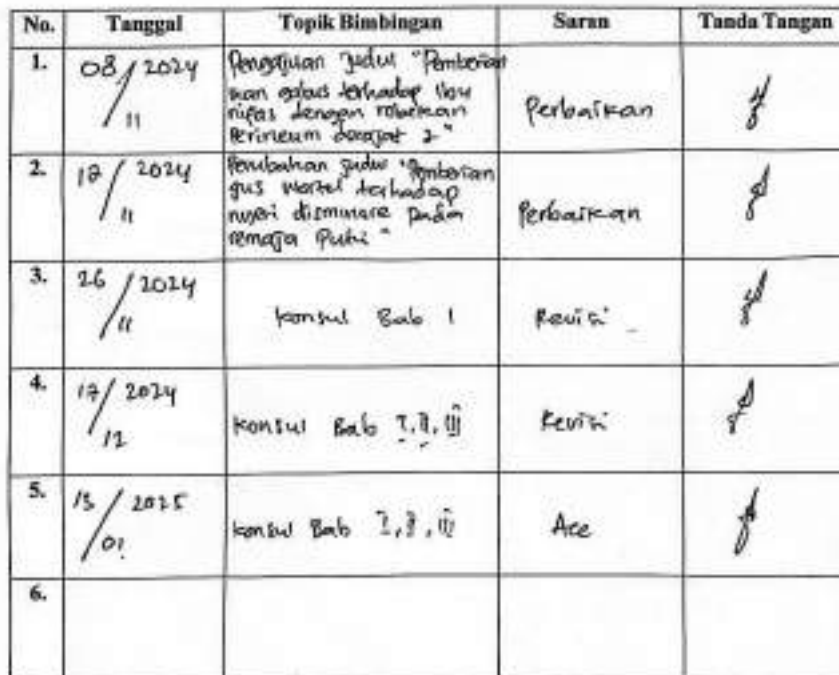 No. Tanggal Topik Bimbingan Saran Tanda Tangan
1. 08/11 2024 Pengajuan judul "Pemberian
ikan gabus terhadap ibu
nifas dengan robekan
Perineum derajat 2"
Perbaikan
2. 18/11 2024 Perubahan judul "Pemberian
jus wortel terhadap
nyeri disminore pada
remaja Putri"
Perbaikan
3. 26/11 2024 Konsul Bab I Revisi
4. 17/12 2024 Konsul Bab I, II, III Revisi
5. 13/01 2025 Konsul Bab I, II, III Acc
6.